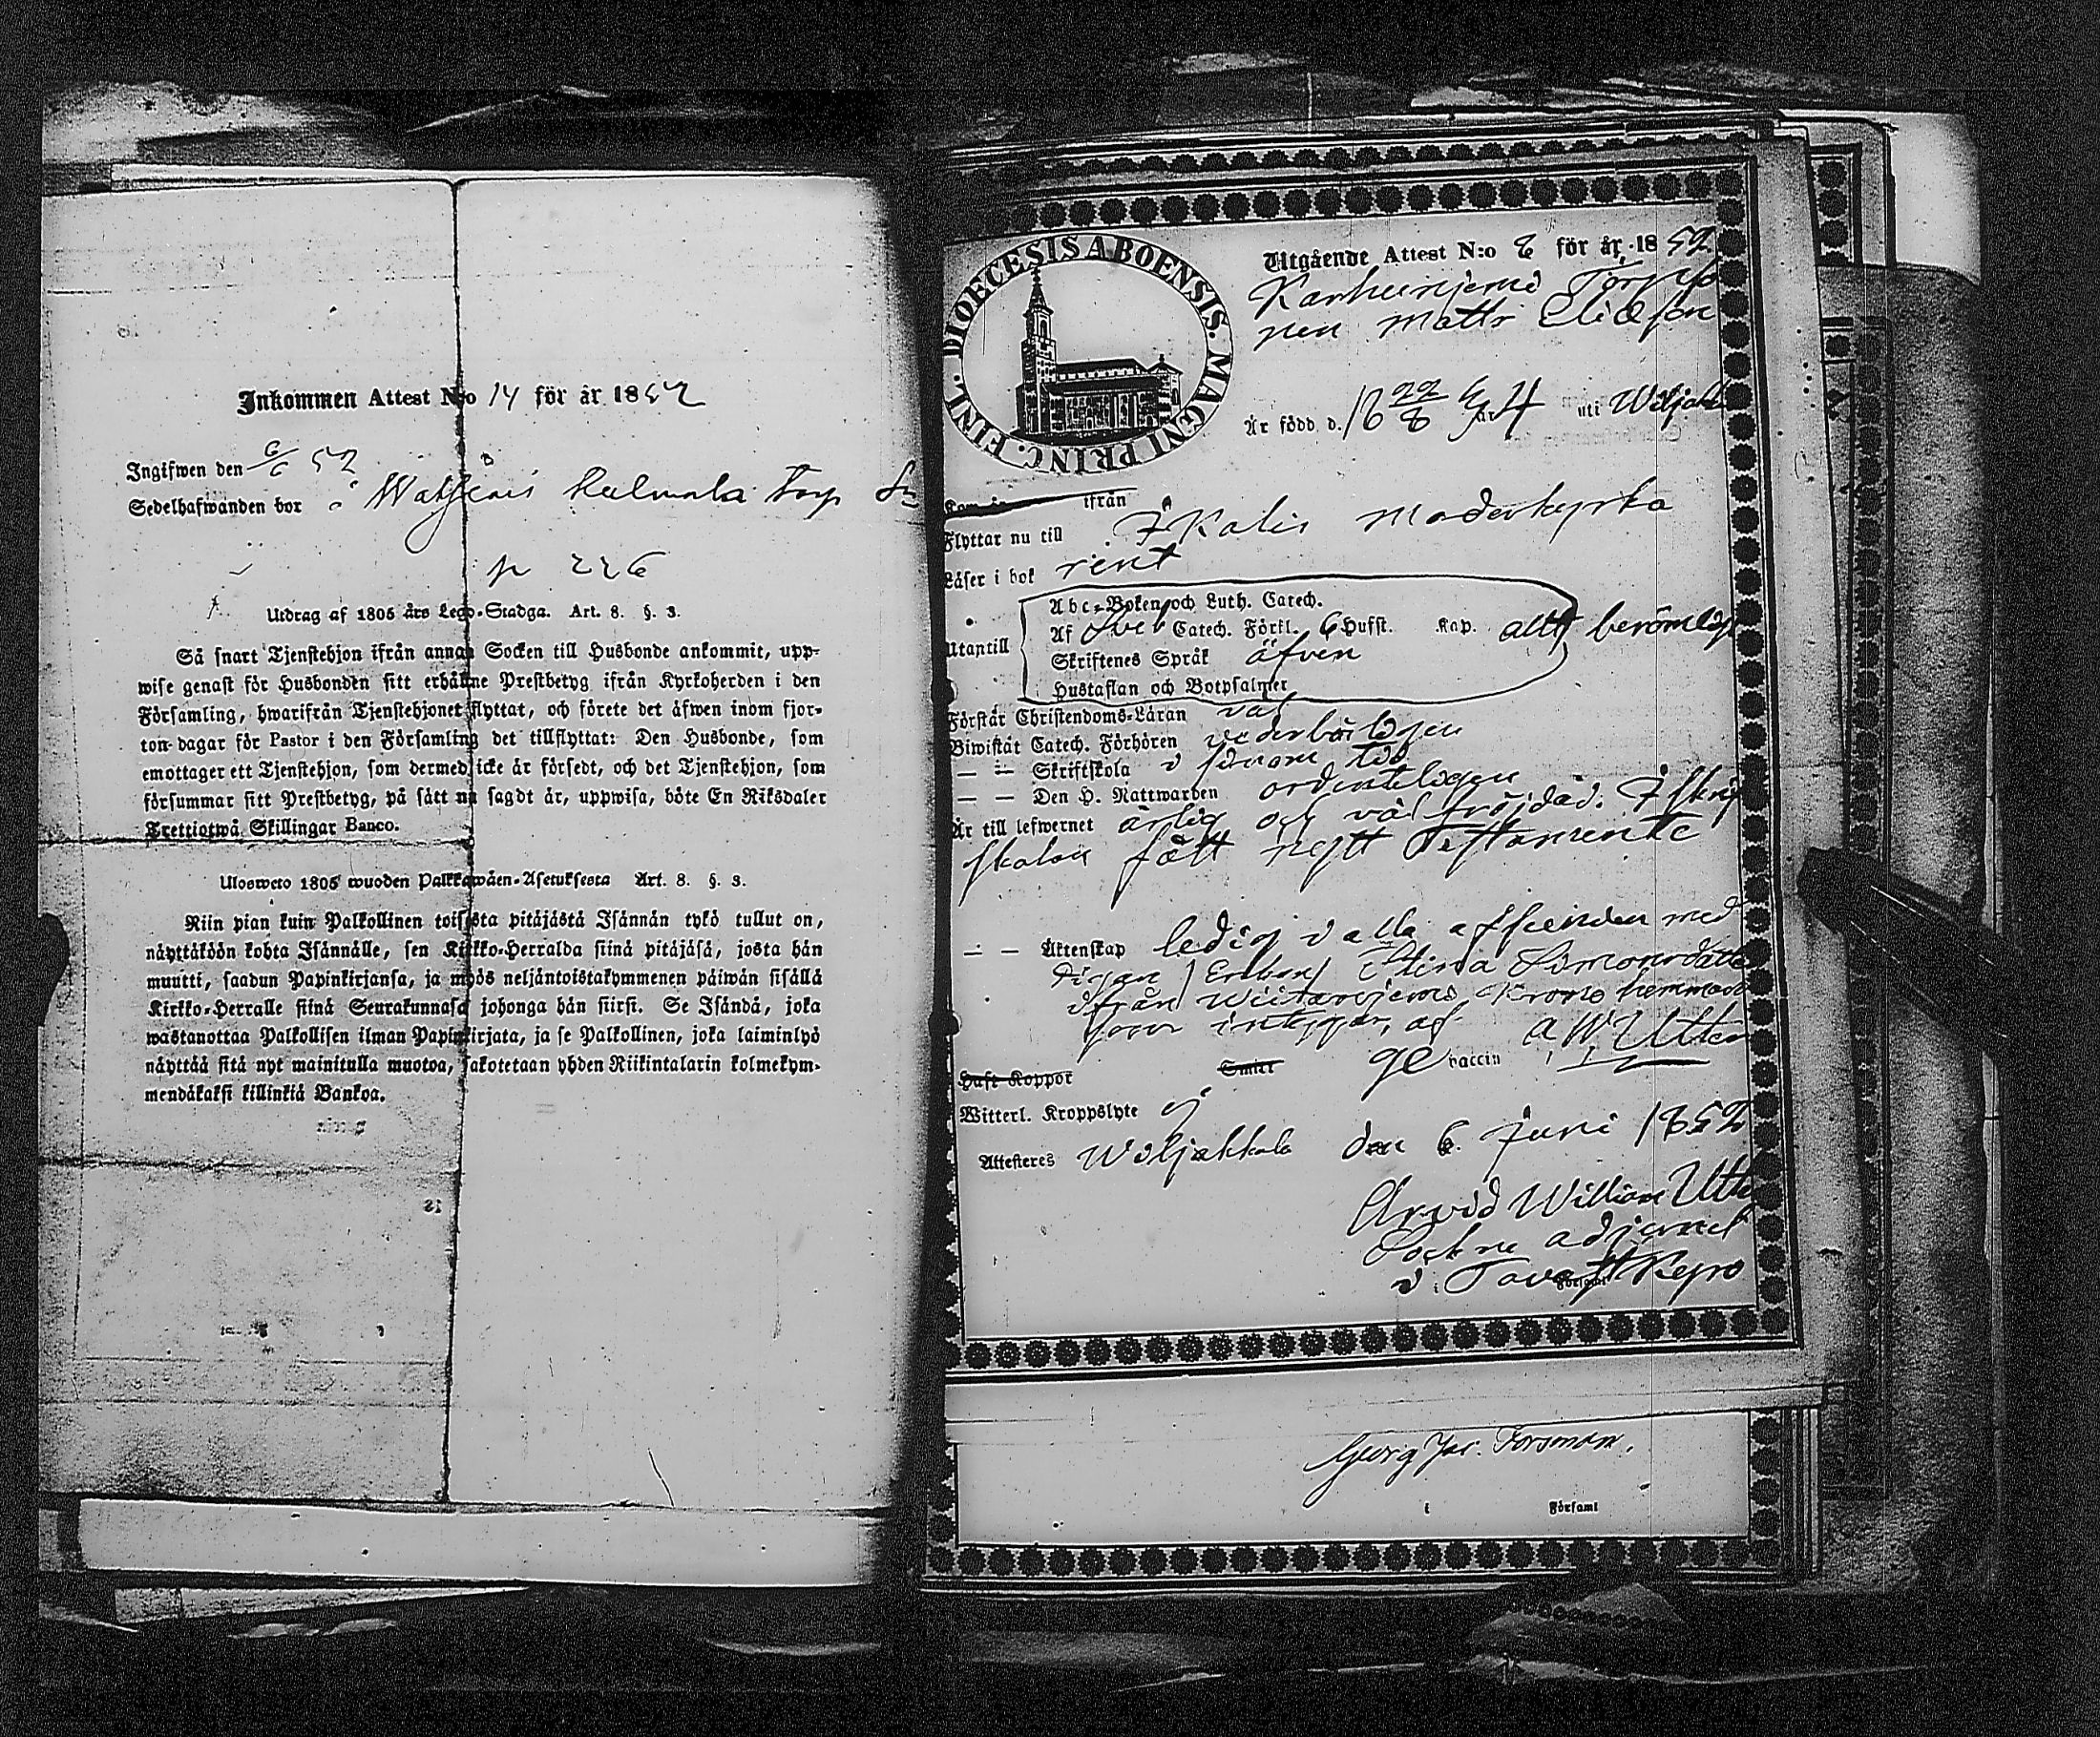 Inkommen Attest N:o 14 för år 1852
Ingifwen den 6/6 52
Sedelhafwanden bor å Torp
p 226
Utdrag af 1805 års Lego-Stadga. Art. 8. §. 3.
Så snart Tjenstehjon ifrån annan Socken till Husbonde ankommit, upp-
wise genast för Husbonden sitt erhållne Prestbetyg ifrån Kyrkoherden i den
Församling, hwarifrån Tjenstehjonet flyttat, och förete det äfwen inom fjor-
ton dagar för Pastor i den Församling det tillflyttat: Den Husbonde, som
emottager ett Tjenstehjon, som dermed icke är försedt, och det Tjenstehjon, som
försummar sitt Prestbetyg, på sätt nu sagdt är, uppwisa, böte En Riksdaler
Trettiotwå Skillingar Banco.
Ulosweto 1805 wuoden Palkkawäen-Asetuksesta Art. 8. §. 3.
Niin pian kuin Palkollinen toisesta pitäjästä Isännän tykö tullut on,
näyttäköön kohta Isännälle, sen Kirkko-Herralda siinä pitäjäsä, josta hän
muutti, saadun Papinkirjansa, ja myös neljäntoistakymmenen päiwän sisällä
Kirkko-Herralle siinä Seurakunnasa johonga hän siirsi. Se Isändä, joka
wastanottaa Palkollisen ilman Papinkirjata, ja se Palkollinen, joka laiminlyö
näyttää sitä nyt mainitulla muotoa, sakotetaan yhden Riikintalarin kolmekym-
mendäkaksi killinkiä Bankoa.
DIOECESIS ABOENSIS. MAGNI PRINC. FINL.
Utgående Attest N:o 8 för år 1852
nen Matts Eliæson
Är född d. 18 22/8 24 uti
ifrån
Flyttar nu till Ikalis Moderkyrka
Läser i bok rent
Abc-Boken och Luth. Catech.
Af Sveb Catech. Förkl. 6 Hufst. Kap. allt berömlig
Utantill
Skriftenes Språk äfven
Hustaflan och Botpsalmer
Förstår Christendoms-Läran väl
Biwistat Catech. Förhören vederbörligen
— — Skriftskola i sinom tid
— — Den H. Nattwarden ordenteligen
Är till lefwernet ärlig och väl fröjdad. I skrift
skolan fått nytt Testamente
— — Äktenskap ledig i alla afseenden med
Pigan Stina Simonsdatter
ifrån hemman
som intygar, af A W Utter
Haft Koppor Smitt vaccin
Witterl. Kroppslyte ej
Attesteres Wiljakkala den 6 Juni 1852
Arvid William Utter
Sockne adjunct
i Tavastkyro
Församl
Georg Jac. Forsman.
i Församl